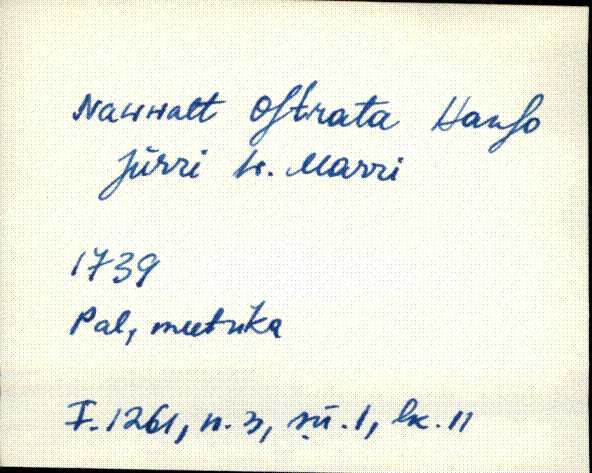 Nawwalt Oftrata Hanfo
Jürri w. Marri
1739
Pal, meetrika
F. 1261, n. 3, sü. 1, lk. 11